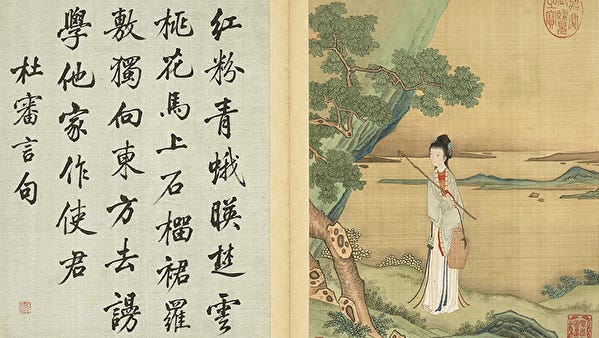 紅粉青蛾暎楚雲
桃花馬上石榴裙羅
敷獨向東方去謾
學他家作使君
杜審言句